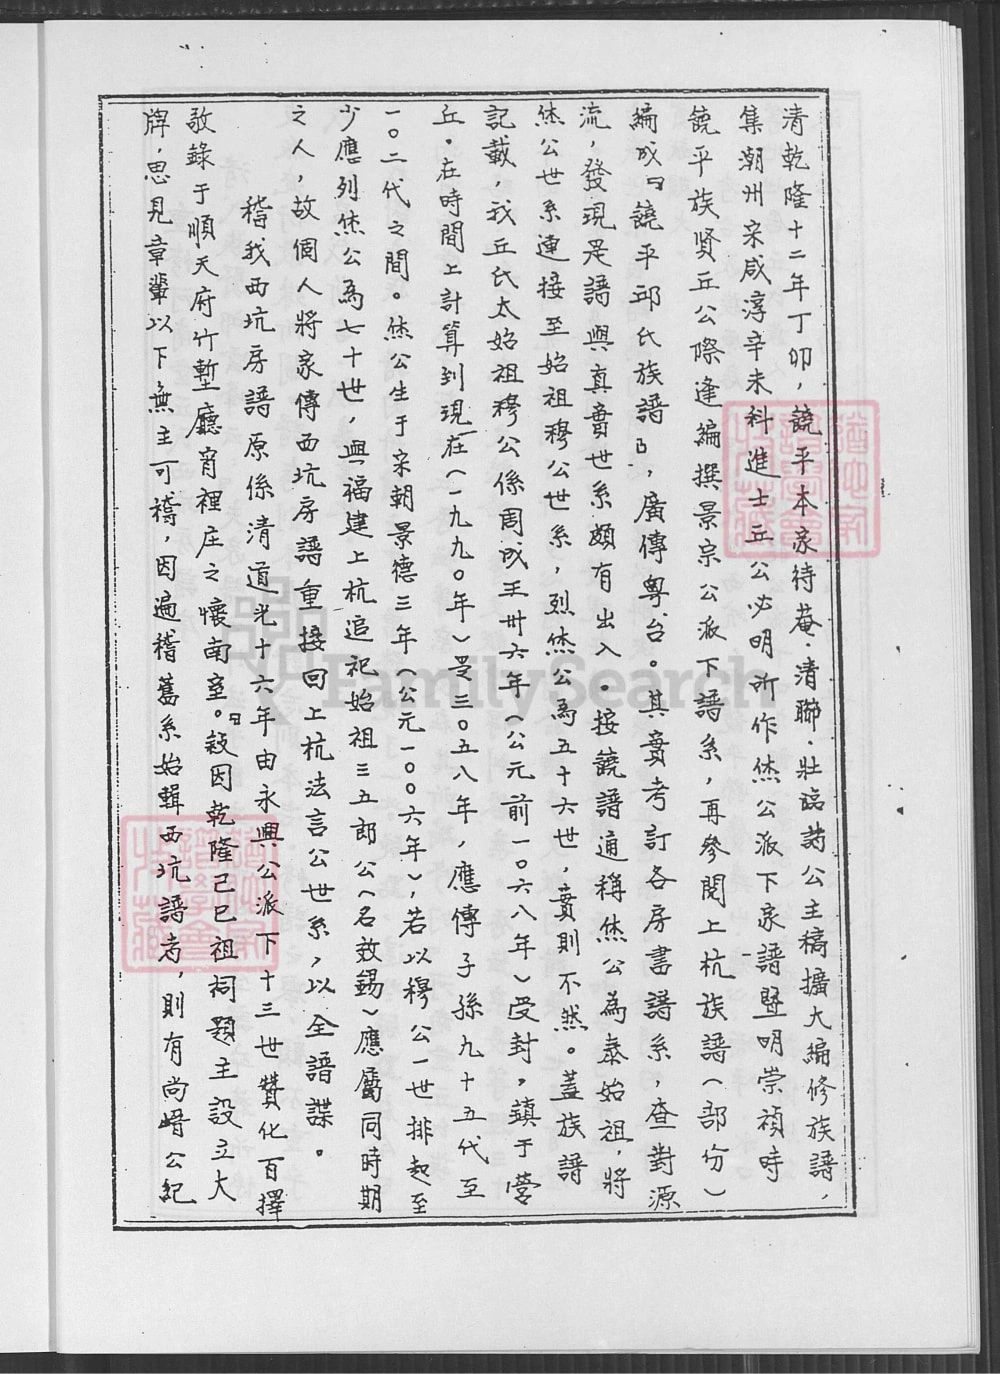 清乾隆十二年丁卯，饒平本家待菴．清聯．壯臨諸公主稿擴大編修族譜，
集潮州宋咸淳辛未科進士丘公必明所作烋公派下家譜暨明崇禎時
饒平族賢丘公際逢編撰景宗公派下譜系，再參閱上杭族譜（部份）
編成「饒平邱氏族譜」，廣傳粵台。其實考訂各房書譜系，查對源
流，發現是譜與真實世系頗有出入。按饒譜通稱烋公為泰始祖，將
烋公世系連接至始祖穆公世系，烈烋公為五十六世，實則不然。蓋族譜
記載，我丘氏太始祖穆公係周成王卅六年（公元前一〇六八年）受封，鎮于營
丘。在時間上計算到現在（一九九〇年）是三〇五八年，應傳子孫九十五代至
一〇二代之間。烋公生于宋朝景德三年（公元一〇〇六年），若以穆公一世排起至
少應列烋公為七十世，與福建上杭追祀始祖三五郎公（名效錫）應屬同時期
之人，故個人將家傳西坑房譜重接回上杭法言公世系，以全譜諜。
稽我西坑房譜原係清道光十六年由永興公派下十三世贊化百擇
敬錄于順天府竹塹廳宵裡庄之懷南室。「敍因乾隆己巳祖祠題主設立大
牌，思見章輩以下無主可禱，因遍稽舊系始輯西坑譜者，則有尚㟙公紀
猶他家譜學會收藏
猶他家譜學會收藏
FamilySearch